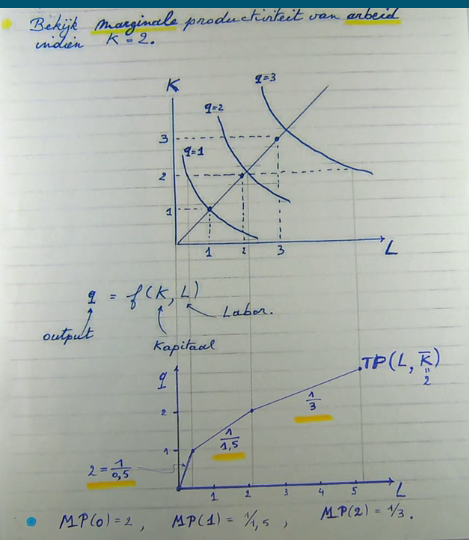 Bekijk marginale productiviteit van arbeid
indien K = 2.
K
q=3
q=2
q=1
3
2
1
1 2 3 L
q = f(K, L)
output
Labor.
Kapitaal
q
TP(L, K̅)
"
2
2
1/3
1
1/1,5
2 = 1/0,5
1 2 3 4 5 L
MP(0) = 2, MP(1) = 1/1,5, MP(2) = 1/3.